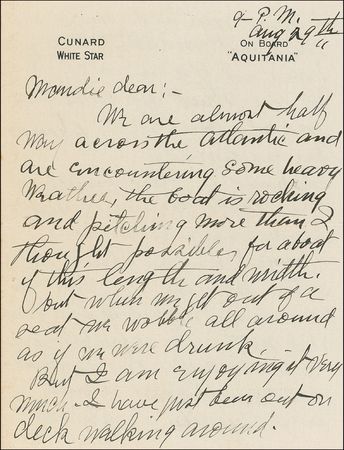 9 P.M.
Aug 29th
CUNARD
WHITE STAR
ON BOARD
"AQUITANIA"
Maudie dear:-
We are almost half
way across the atlantic and
are encountering some heavy
weather, the boat is rocking
and pitching more than I
thought possible, for a boat
of this length and width.
but when we get out of a
seat we wobble all around
as if we were drunk.
But I am enjoying it very
much - I have just been out on
deck walking around.